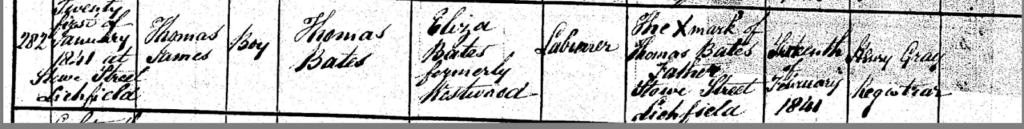 282
Twenty
first of
January
1841 at
Stowe Street
Lichfield
Thomas
James
Boy
Thomas
Bates
Eliza
Bates
formerly
Westwood
Labourer
The X mark of
Thomas Bates
Father
Stowe Street
Lichfield
Sixteenth
of
February
1841
Henry Gray
Registrar